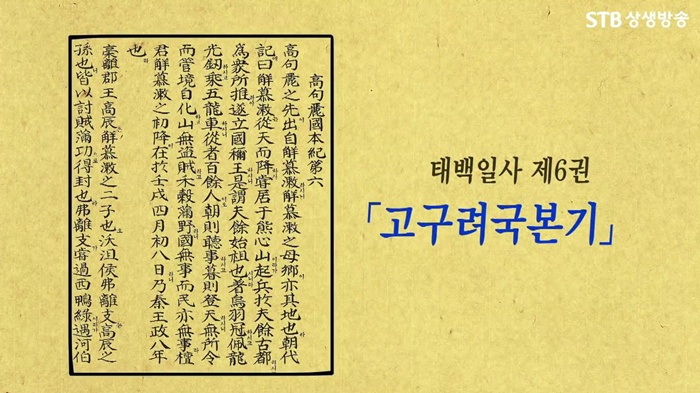 STB 상생방송
高句麗國本紀第六
高句麗之先出自解慕漱解慕漱之母鄉亦其地也朝代
記曰解慕漱從天而降嘗居于熊心山起兵於夫餘古都
爲衆所推遂立國稱王是謂夫餘始祖也著烏羽冠佩龍
光釰乘五龍車從者百餘人朝則聽事暮則登天無所令
而管境自化山無盜賊禾穀滿野國無事而民亦無事檀
君解慕漱之初降在於壬戌四月初八日乃秦王政八年
也
槀離郡王高辰解慕漱之二子也沃沮侯弗離支高辰之
孫也皆以討賊滿功得封也弗離支嘗過西鴨綠遇河伯
태백일사 제6권
「고구려국본기」